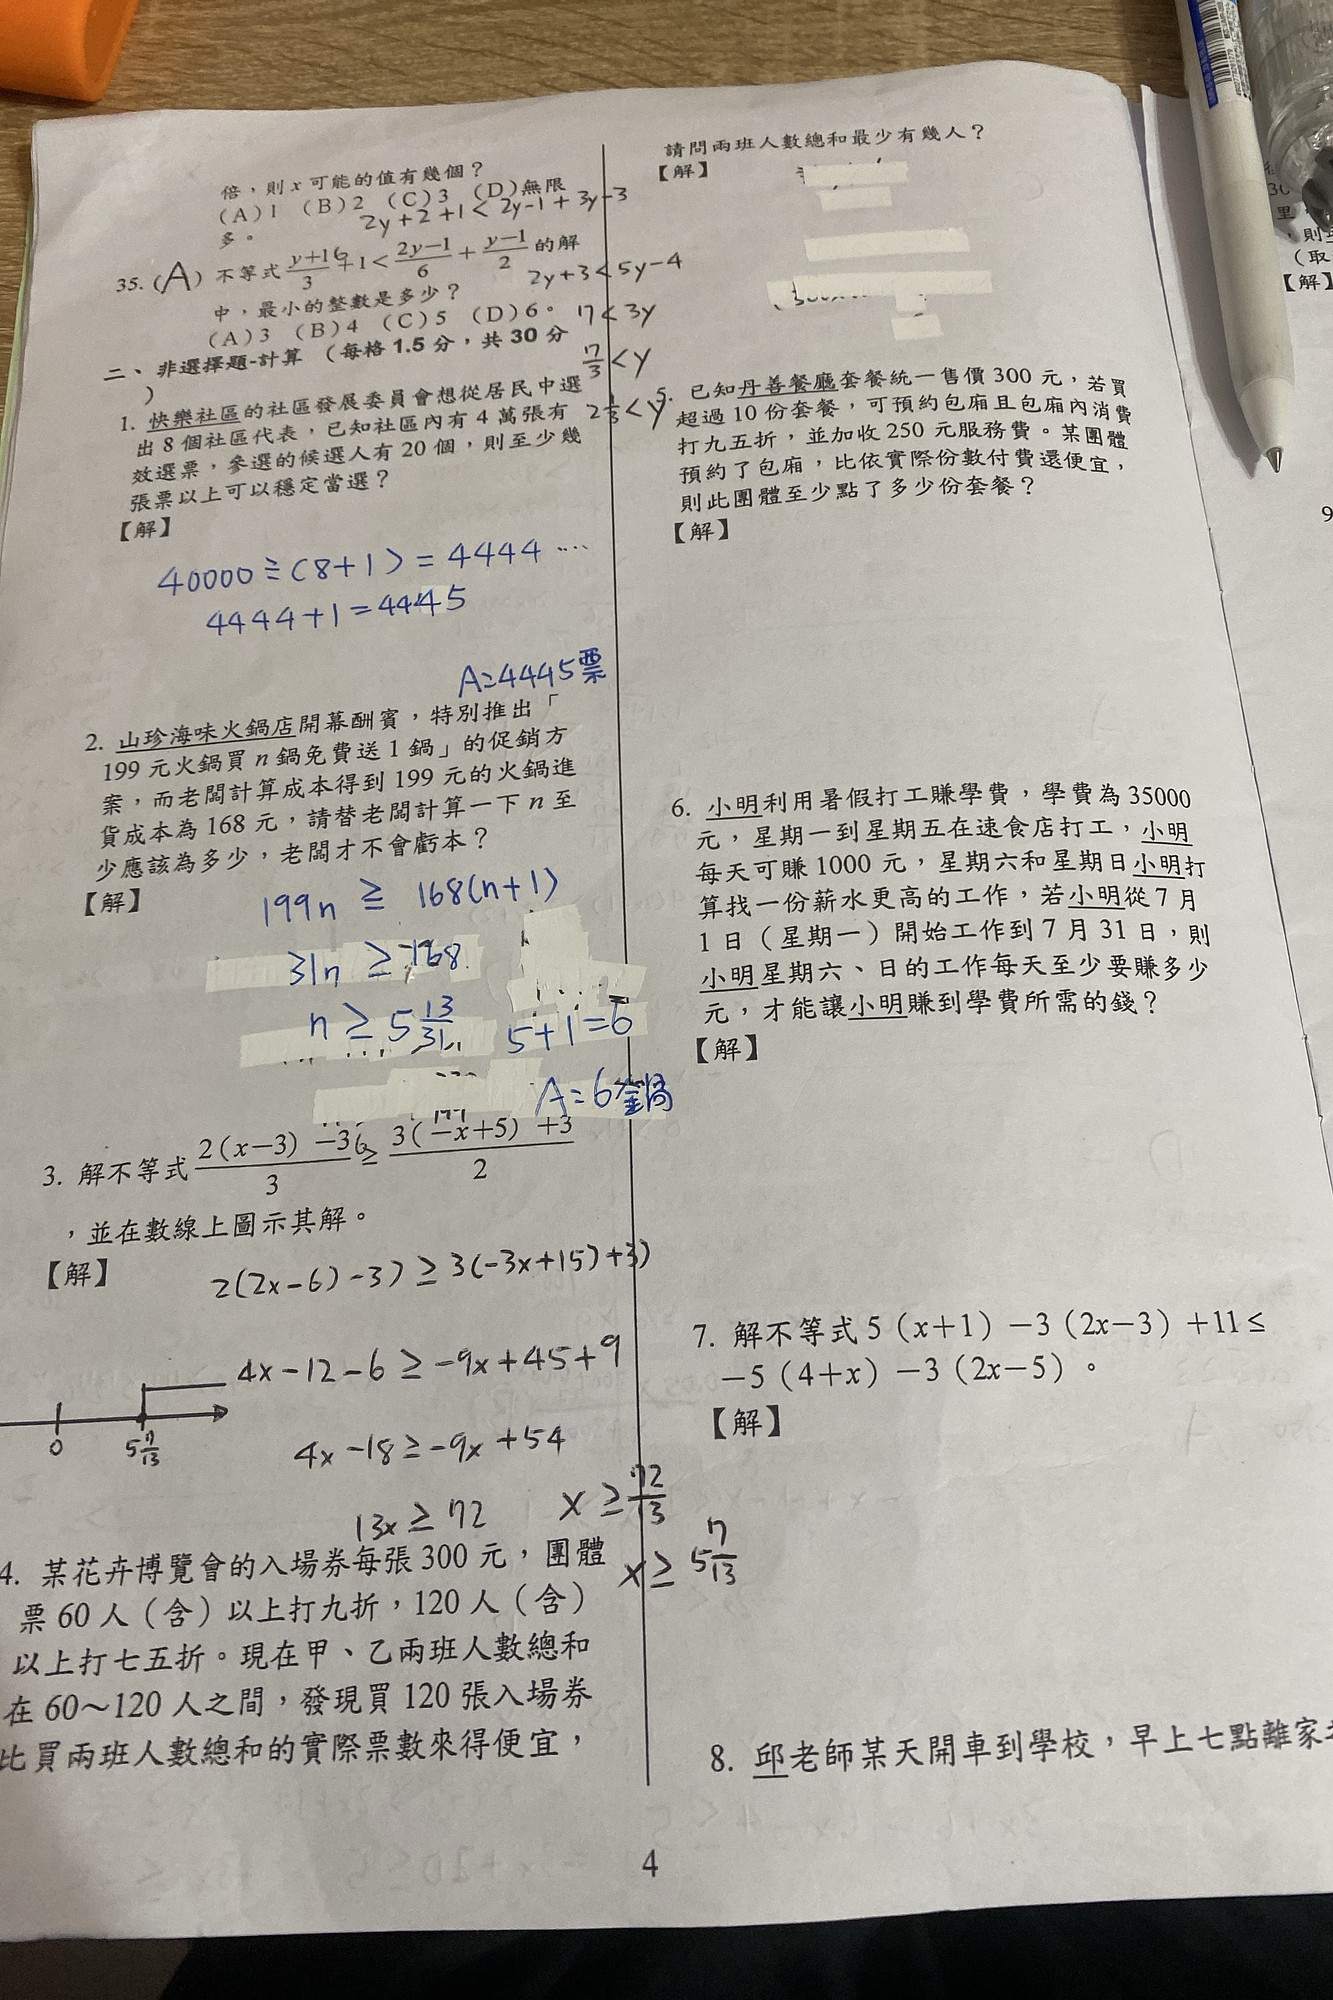 倍，則 x 可能的值有幾個？
(A) 1 (B) 2 (C) 3 (D) 無限
多。
2y+2+1<2y-1+3y-3
35. (A) 不等式 (y+1)/3 +1 < (2y−1)/6 + (y−1)/2 的解
2y+3<5y-4
中，最小的整數是多少？
(A) 3 (B) 4 (C) 5 (D) 6。
17<3y
17/3<y
2 1/3<y
二、非選擇題-計算 （每格 1.5 分，共 30 分
）
1. 快樂社區的社區發展委員會想從居民中選
出 8 個社區代表，已知社區內有 4 萬張有
效選票，參選的候選人有 20 個，則至少幾
張票以上可以穩定當選？
【解】
40000÷(8+1)=4444....
4444+1=4445
A=4445票
2. 山珍海味火鍋店開幕酬賓，特別推出「
199 元火鍋買 n 鍋免費送 1 鍋」的促銷方
案，而老闆計算成本得到 199 元的火鍋進
貨成本為 168 元，請替老闆計算一下 n 至
少應該為多少，老闆才不會虧本？
【解】
199n ≥ 168(n+1)
31n ≥ 168
n ≥ 5 13/31
5+1=6
A=6鍋
3. 解不等式 (2(x−3)−3)/3 ≥ (3(−x+5)+3)/2
，並在數線上圖示其解。
【解】
2(2x-6)-3) ≥ 3(-3x+15)+3)
4x-12-6 ≥ -9x+45+9
0 5 7/13
4x-18 ≥ -9x+54
13x ≥ 72
x ≥ 72/13
x ≥ 5 7/13
4. 某花卉博覽會的入場券每張 300 元，團體
票 60 人（含）以上打九折，120 人（含）
以上打七五折。現在甲、乙兩班人數總和
在 60～120 人之間，發現買 120 張入場券
比買兩班人數總和的實際票數來得便宜，
請問兩班人數總和最少有幾人？
【解】
5. 已知丹善餐廳套餐統一售價 300 元，若買
超過 10 份套餐，可預約包廂且包廂內消費
打九五折，並加收 250 元服務費。某團體
預約了包廂，比依實際份數付費還便宜，
則此團體至少點了多少份套餐？
【解】
6. 小明利用暑假打工賺學費，學費為 35000
元，星期一到星期五在速食店打工，小明
每天可賺 1000 元，星期六和星期日小明打
算找一份薪水更高的工作，若小明從 7 月
1 日（星期一）開始工作到 7 月 31 日，則
小明星期六、日的工作每天至少要賺多少
元，才能讓小明賺到學費所需的錢？
【解】
7. 解不等式 5（x＋1）−3（2x−3）＋11≤
−5（4＋x）−3（2x−5）。
【解】
8. 邱老師某天開車到學校，早上七點離家
4
30
里
，則
（取
【解】
9